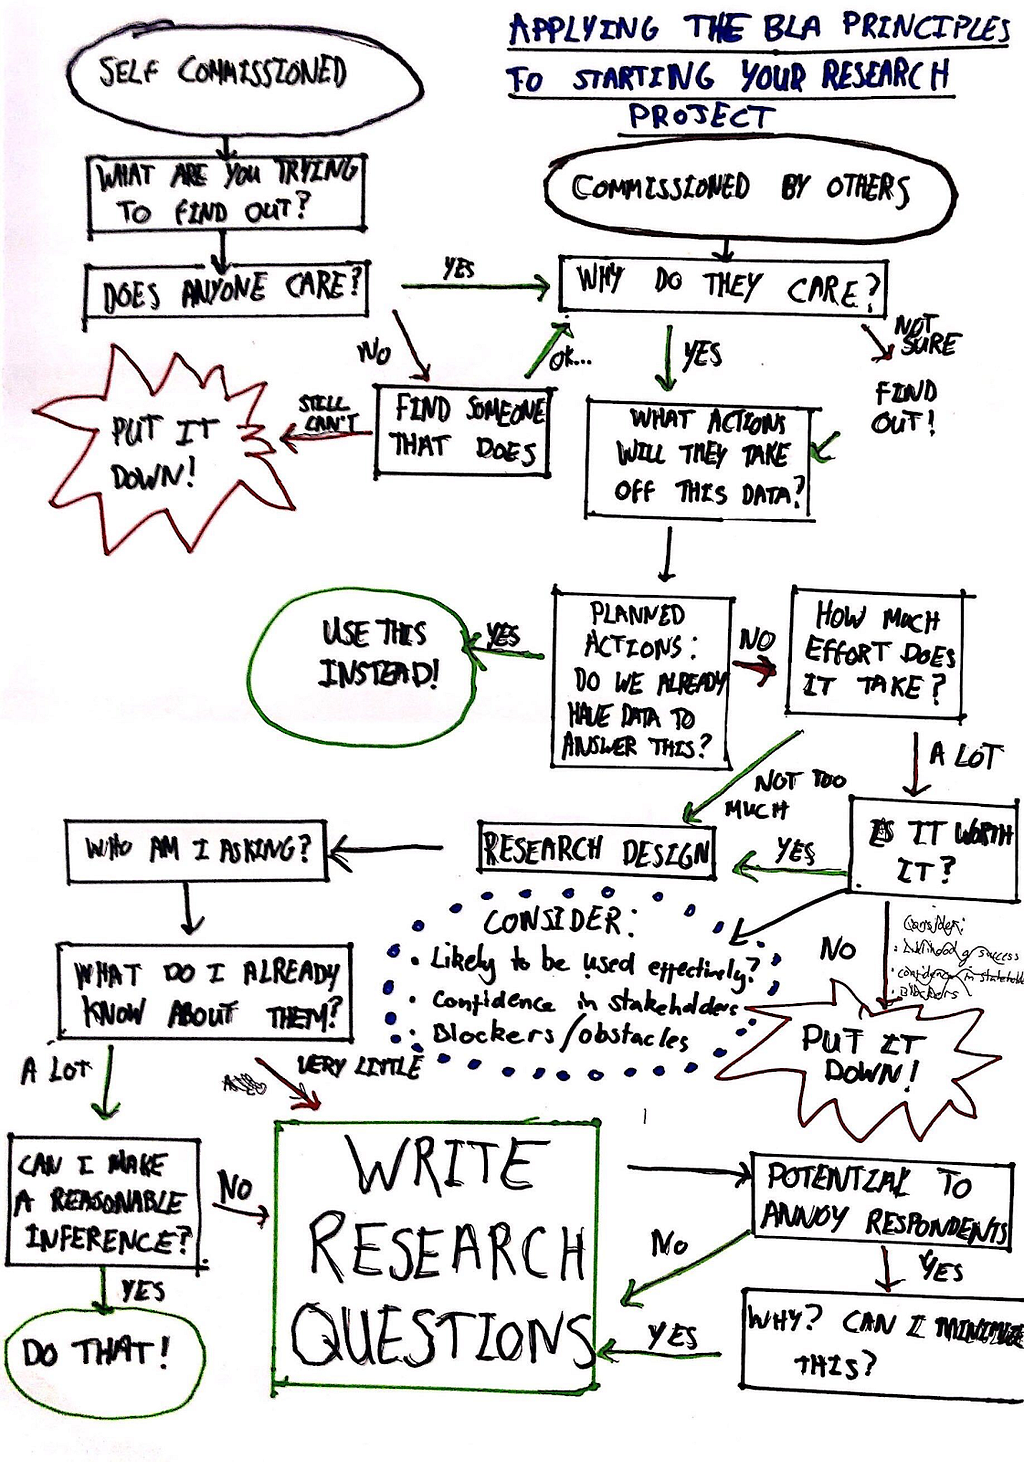 APPLYING THE BLA PRINCIPLES
TO STARTING YOUR RESEARCH
PROJECT
SELF COMMISSIONED
WHAT ARE YOU TRYING
TO FIND OUT?
DOES ANYONE CARE?
YES
NO
COMMISSIONED BY OTHERS
WHY DO THEY CARE?
NOT
SURE
FIND
OUT!
YES
OK...
FIND SOMEONE
THAT DOES
STILL
CAN'T
PUT IT
DOWN!
WHAT ACTIONS
WILL THEY TAKE
OFF THIS DATA?
PLANNED
ACTIONS:
DO WE ALREADY
HAVE DATA TO
ANSWER THIS?
YES
USE THIS
INSTEAD!
NO
HOW MUCH
EFFORT DOES
IT TAKE?
NOT TOO
MUCH
A LOT
IS IT WORTH
IT?
YES
NO
Consider:
likelihood of success
confidence in stakeholde
Blockers
PUT IT
DOWN!
RESEARCH DESIGN
CONSIDER:
• Likely to be used effectively?
• Confidence in stakeholders
• Blockers/obstacles
WHO AM I ASKING?
WHAT DO I ALREADY
KNOW ABOUT THEM?
A LOT
VERY LITTLE
CAN I MAKE
A REASONABLE
INFERENCE?
NO
YES
DO THAT!
WRITE
RESEARCH
QUESTIONS
POTENTIAL TO
ANNOY RESPONDENTS
No
YES
WHY? CAN I MINIMIZE
THIS?
YES